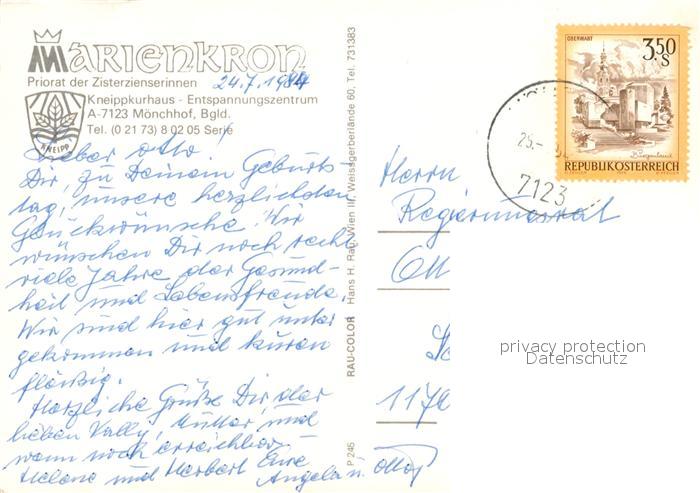 MARIENKRON
Priorat der Zisterzienserinnen
24.7.1984
Kneippkurhaus - Entspannungszentrum
A-7123 Mönchhof, Bgld.
Tel. (0 21 73) 8 02 05 Serie
KNEIPP
Lieber Otto!
Dir, zu Deinem Geburts-
tag, unsere herzlichsten
Glückwünsche! Wir
wünschen Dir noch recht
viele Jahre der Gesund-
heit und Lebensfreude.
Wir sind hier gut unter
gekommen und kuren
fleißig.
Herzliche Grüße Dir, der
lieben Vally, Mutter, und
wenn noch erreichbar -
Helene und Herbert Eure
Angela u. Otto
RAU-COLOR Hans H. Rau, Wien III, Weissgerberlände 60, Tel. 731383
P 245
OBERWART
3.50
S
Burgenland
REPUBLIK ÖSTERREICH
25.-
7123
Herrn
Regierungsrat
Ott
117
privacy protection
Datenschutz